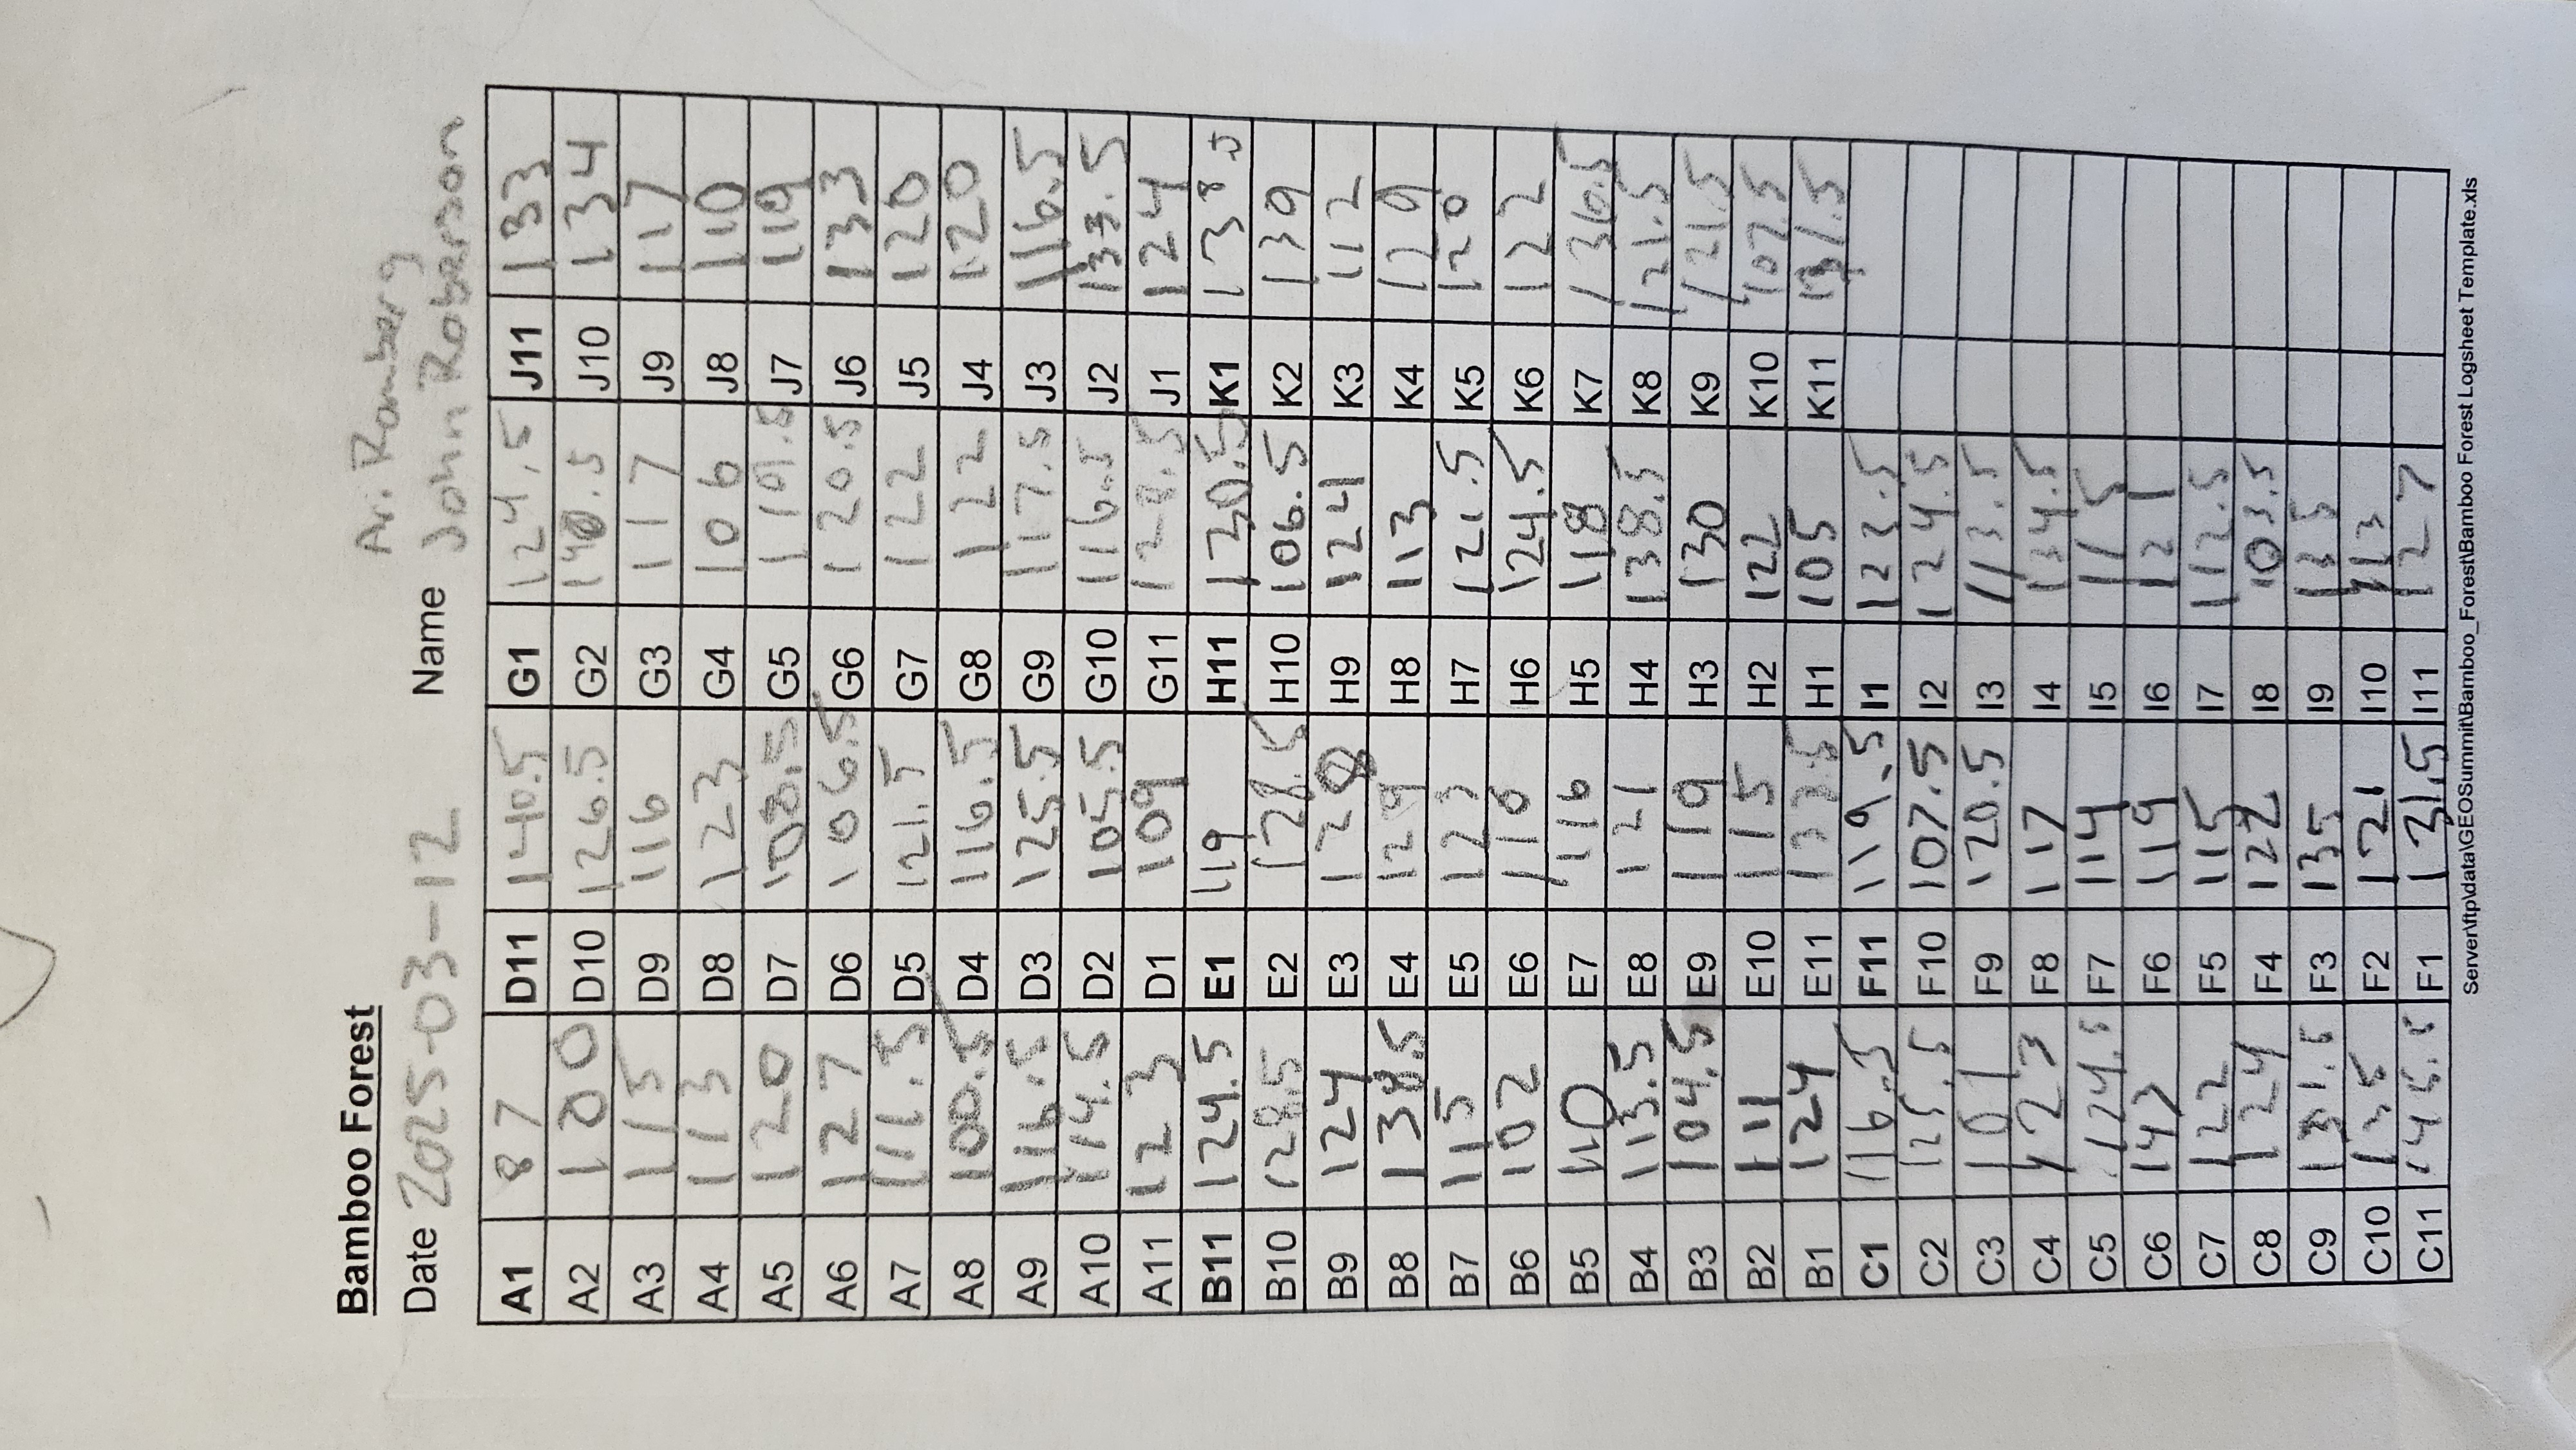 Bamboo Forest
Ari Romberg
Date 2025-03-12 Name John Roberson
A1 87 D11 140.5 G1 124.5 J11 133
A2 120 D10 126.5 G2 J10 134
A3 113 D9 116 G3 117 J9 117
A4 113 D8 123 G4 106 J8 110
A5 120 D7 108.5 G5 J7 119
A6 127 D6 106.5 G6 120.5 J6 133
A7 111.5 D5 121.5 G7 122 J5 120
A8 D4 116.5 G8 122 J4 120
A9 116.5 D3 125.5 G9 117.5 J3 116.5
A10 114.5 D2 105.5 G10 116.5 J2
A11 123 D1 109 G11 J1 124
B11 124.5 E1 119 H11 130.5 K1 138.5
B10 128.5 E2 128.5 H10 106.5 K2 139
B9 124 E3 128 H9 124 K3 112
B8 138.5 E4 129 H8 113 K4 129
B7 115 E5 123 H7 121.5 K5 120
B6 102 E6 H6 124.5 K6 122
B5 110 E7 116 H5 118 K7 136.5
B4 113.5 E8 121 H4 138.5 K8 121.5
B3 104.5 E9 119 H3 130 K9 121.5
B2 111 E10 115 H2 122 K10 107.5
B1 124 E11 133.5 H1 105 K11 131.5
C1 116.5 F11 119.5 I1 123.5
C2 125.5 F10 107.5 I2 124.5
C3 101 F9 120.5 I3 113.5
C4 123 F8 117 I4 134.5
C5 124.5 F7 114 I5 115
C6 142 F6 119 I6 121
C7 122 F5 115 I7 112.5
C8 124 F4 122 I8 103.5
C9 131.5 F3 135 I9 135
C10 135 F2 121 I10 113
C11 F1 131.5 I11 127
Server\ftp\data\GEOSummit\Bamboo_Forest\Bamboo Forest Logsheet Template.xls